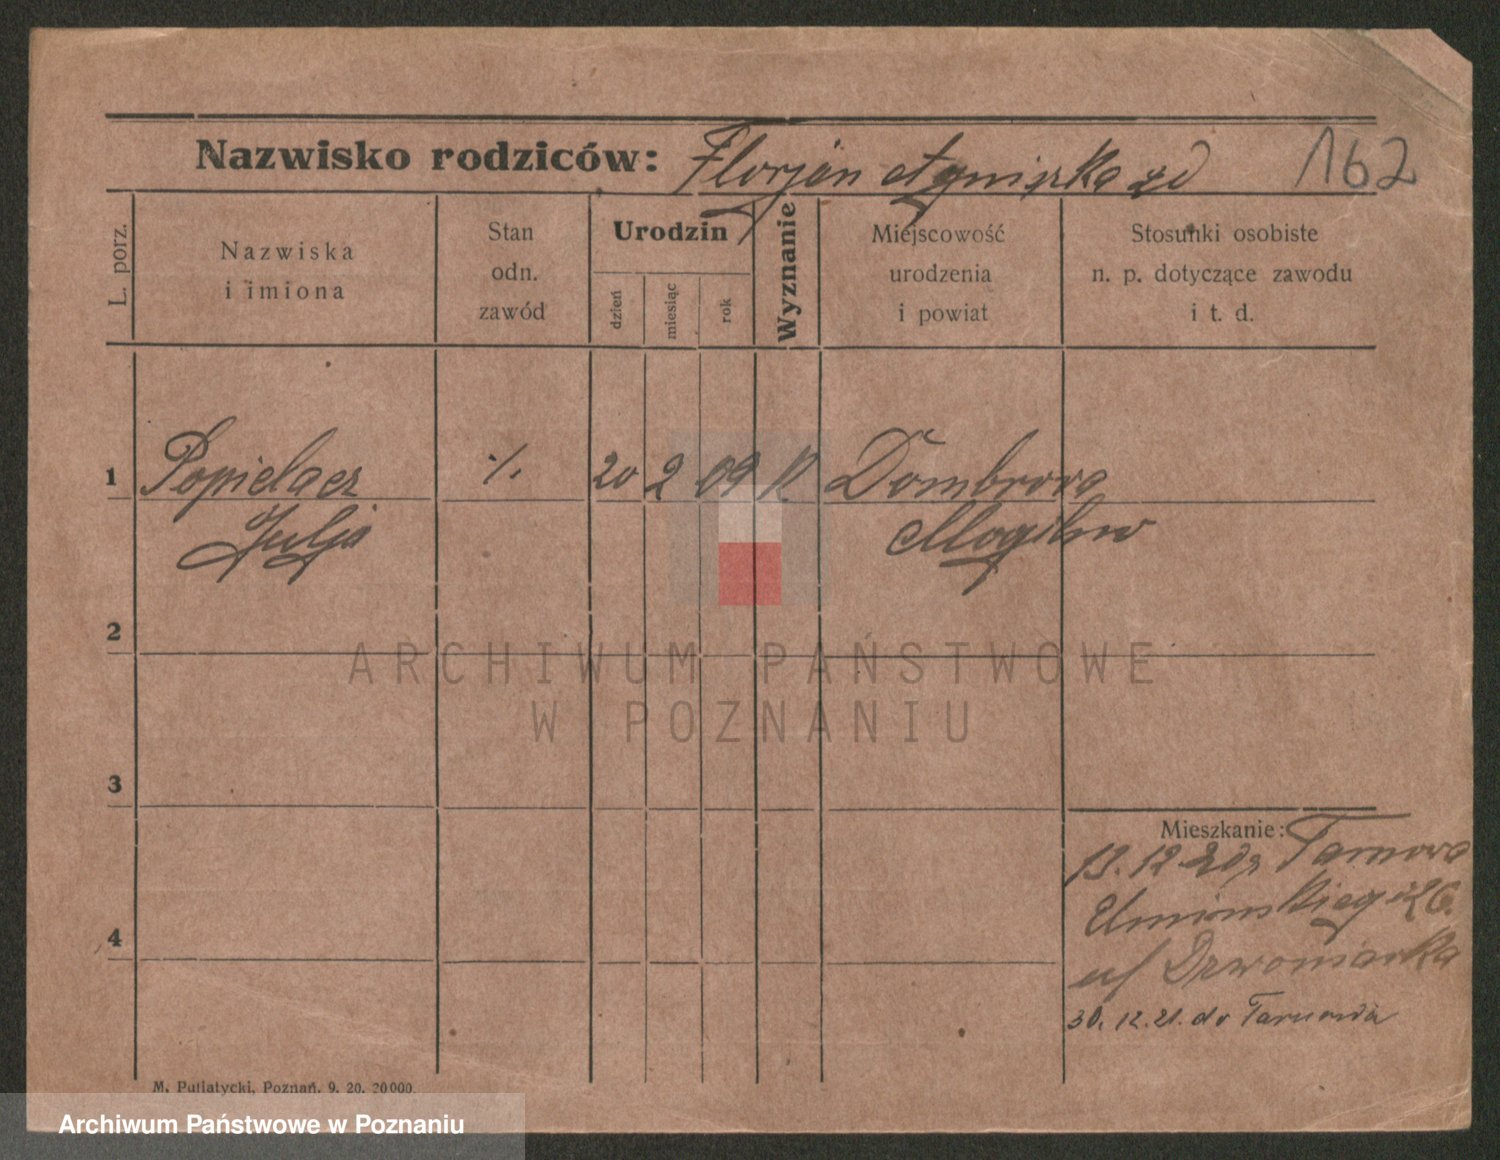 Nazwisko rodziców: Florjan Agnieszka 162
L. porz.
Nazwiska
i imiona
Stan
odn.
zawód
Urodzin
dzień
miesiąc
rok
Wyznanie
Miejscowość
urodzenia
i powiat
Stosunki osobiste
n. p. dotyczące zawodu
i t. d.
1 Popielacz ./. 20 2 09 K Dombrowa
Julja Mogilno
2
ARCHIWUM PAŃSTWOWE
W POZNANIU
3
Mieszkanie:
13.12.20 z Tarnowa
Umińskiego 26.
u/ Dzwoniarka
4
30.12.21. do Tarnowa
M. Putiatycki, Poznań. 9. 20. 20000.
Archiwum Państwowe w Poznaniu